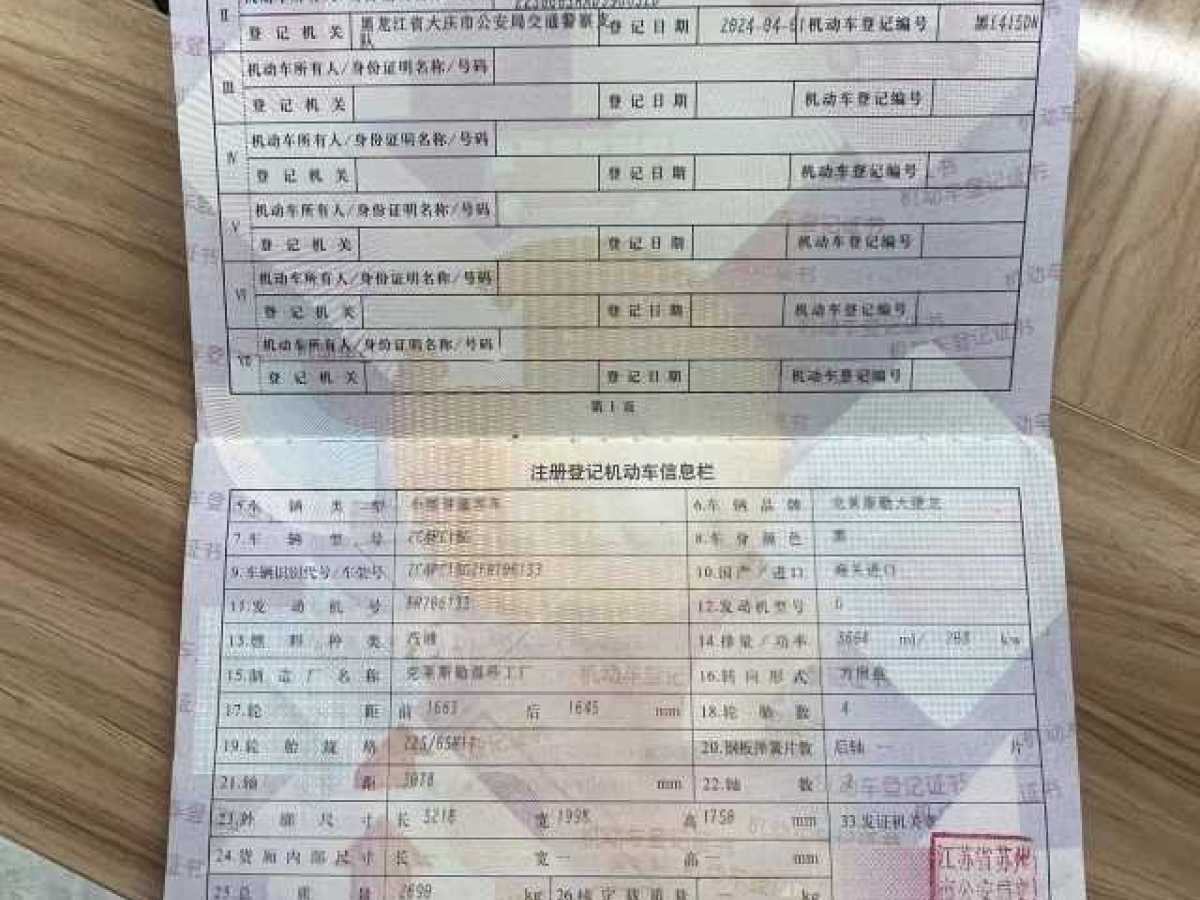 II
登记机关 黑龙江省大庆市公安局交通警察支队 登记日期 2024-04- 机动车登记编号
III 机动车所有人/身份证明名称/号码
登记机关 登记日期 机动车登记编号
IV 机动车所有人/身份证明名称/号码
登记机关 登记日期 机动车登记编号
V 机动车所有人/身份证明名称/号码
登记机关 登记日期 机动车登记编号
VI 机动车所有人/身份证明名称/号码
登记机关 登记日期 机动车登记编号
VII 机动车所有人/身份证明名称/号码
登记机关 登记日期 机动车登记编号
第1页
注册登记机动车信息栏
5.车辆类型 6.车辆品牌 克莱斯勒大捷龙
7.车辆型号 8.车身颜色 黑
9.车辆识别代号/车架号 10.国产/进口 海关进口
11.发动机号 12.发动机型号
13.燃料种类 汽油 14.排量/功率 ml/ kw
15.制造厂名称 16.转向形式 方向盘
17.轮距 前 1663 后 1645 mm 18.轮胎数 4
19.轮胎规格 20.钢板弹簧片数 后轴 一 片
21.轴距 3078 mm 22.轴数 2
23.外廓尺寸 长 5218 宽 1998 高 1750 mm 33.发证机关章
24.货厢内部尺寸 长 一 宽 一 高 一 mm
江苏省苏州
市公安局
25.总质量 kg 26.核定载质量 一 kg